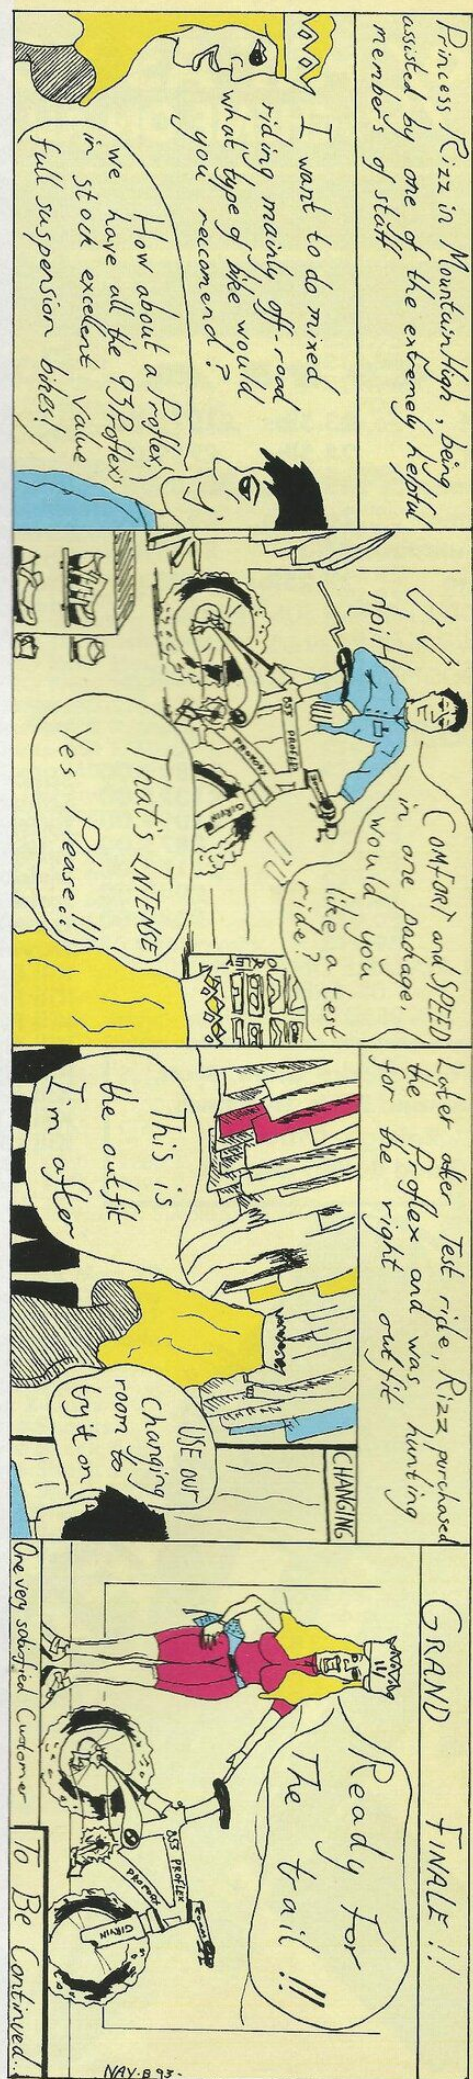 Princess Rizz in Mountain High, being
assisted by one of the extremely helpful
members of staff
I want to do mixed
riding mainly off-road
what type of bike would
you reccomend?
How about a Proflex,
we have all the 93 Proflex's
in stock excellent value
full suspension bikes!
High
COMFORT and SPEED
in one package,
would you
like a test
ride?
853 PROFLEX
GIRVIN
OAKLEY
That's INTENSE
Yes Please!!
Later after Test ride, Rizz purchased
the Proflex and was hunting
for the right outfit
This is
the outfit
I'm after
CHANGING
USE our
changing
room to
try it on
GRAND FINALE!!
Ready For
The trail!!!
853 PROFLEX
GIRVIN
One very satisfied Customer
To Be Continued...
NAY.B 93-